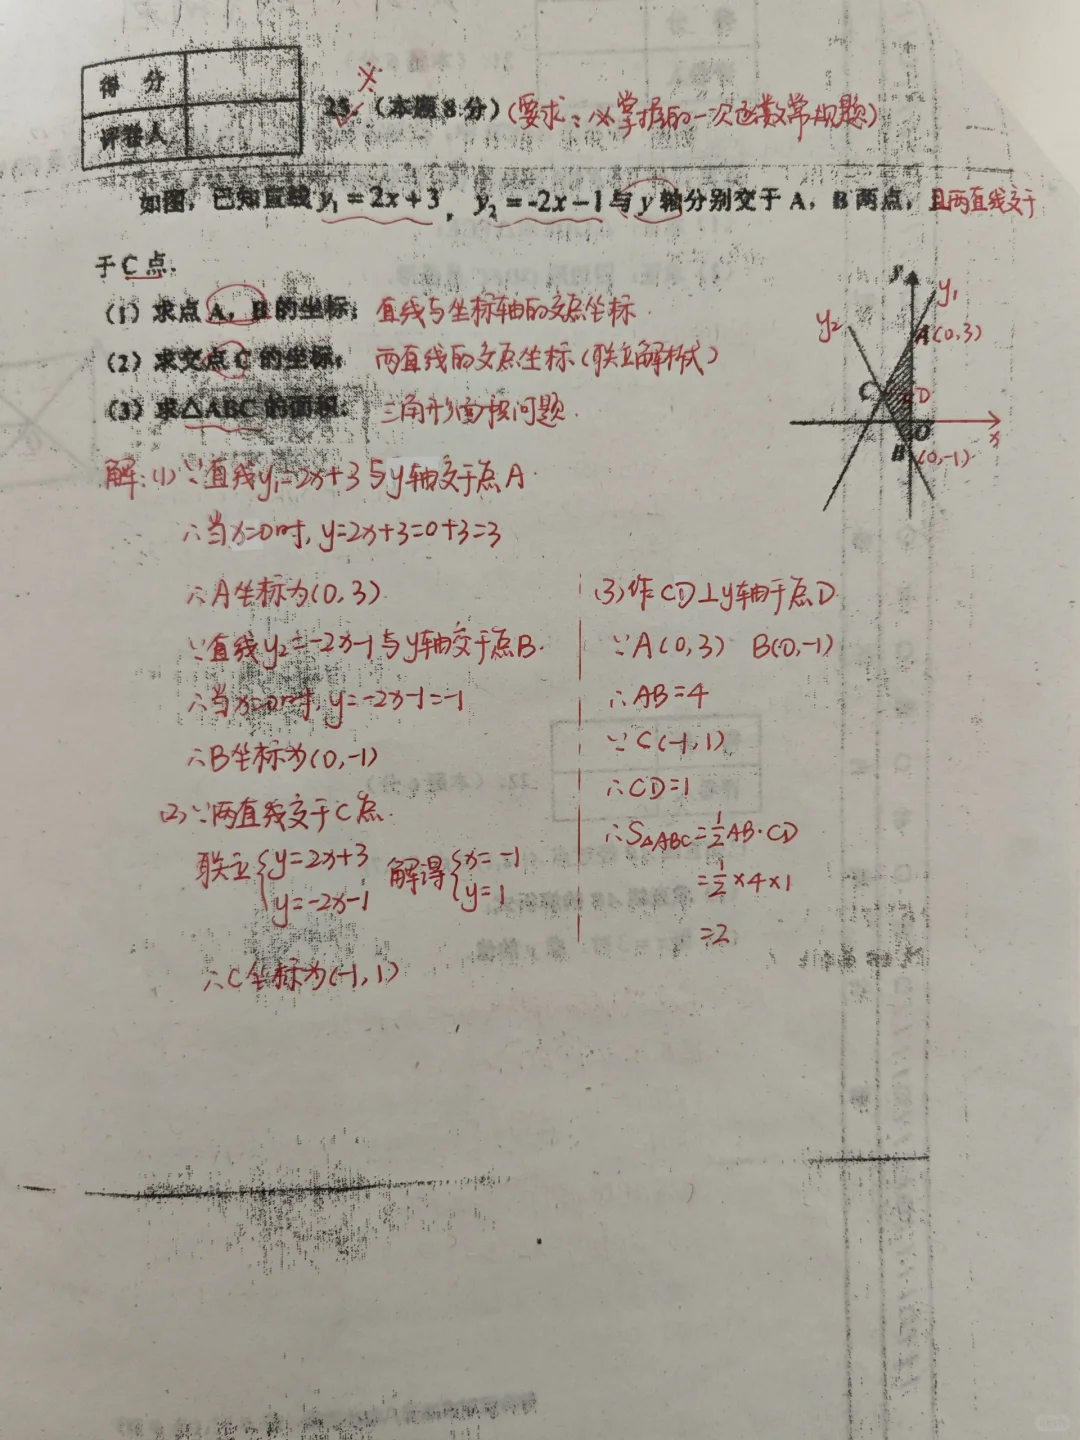 得 分
评卷人
25.(本题8分)(要求:必掌握的一次函数常规题)
如图,已知直线 y₁=2x+3, y₂=-2x-1与y轴分别交于A,B两点,且两直线交于
于C点.
(1)求点A,B的坐标; 直线与坐标轴的交点坐标
(2)求交点C的坐标; 两直线的交点坐标(联立解析式)
(3)求△ABC的面积. 三角形面积问题.
y
y₁
y₂
A(0,3)
C
D
O
x
B(0,-1)
解:(1)∵直线y₁=2x+3与y轴交于点A.
∴当x=0时,y=2x+3=0+3=3
∴A坐标为(0,3)
∵直线y₂=-2x-1与y轴交于点B.
∴当x=0时,y=-2x-1=-1
∴B坐标为(0,-1)
(2)∵两直线交于C点.
联立{y=2x+3 解得{x=-1
y=-2x-1 y=1
∴C坐标为(-1,1)
(3)作CD⊥y轴于点D
∵A(0,3) B(0,-1)
∴AB=4
∵C(-1,1)
∴CD=1
∴S△ABC=½AB·CD
=½×4×1
=2